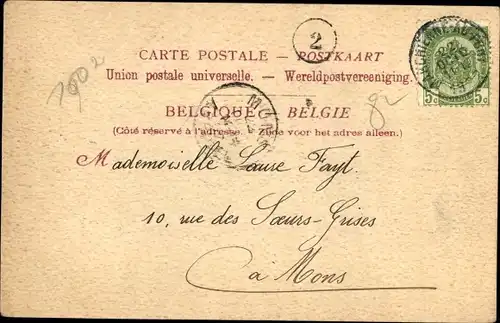 2
1902
CARTE POSTALE — POSTKAART
Union postale universelle. — Wereldpostvereeniging.
5c 5c
MONS
BELGIQUE BELGIE
(Côté réservé à l'adresse. Zijde voor het adres alleen.)
Mademoiselle Laure Fayt.
10, rue des Sœurs-Grises
à Mons